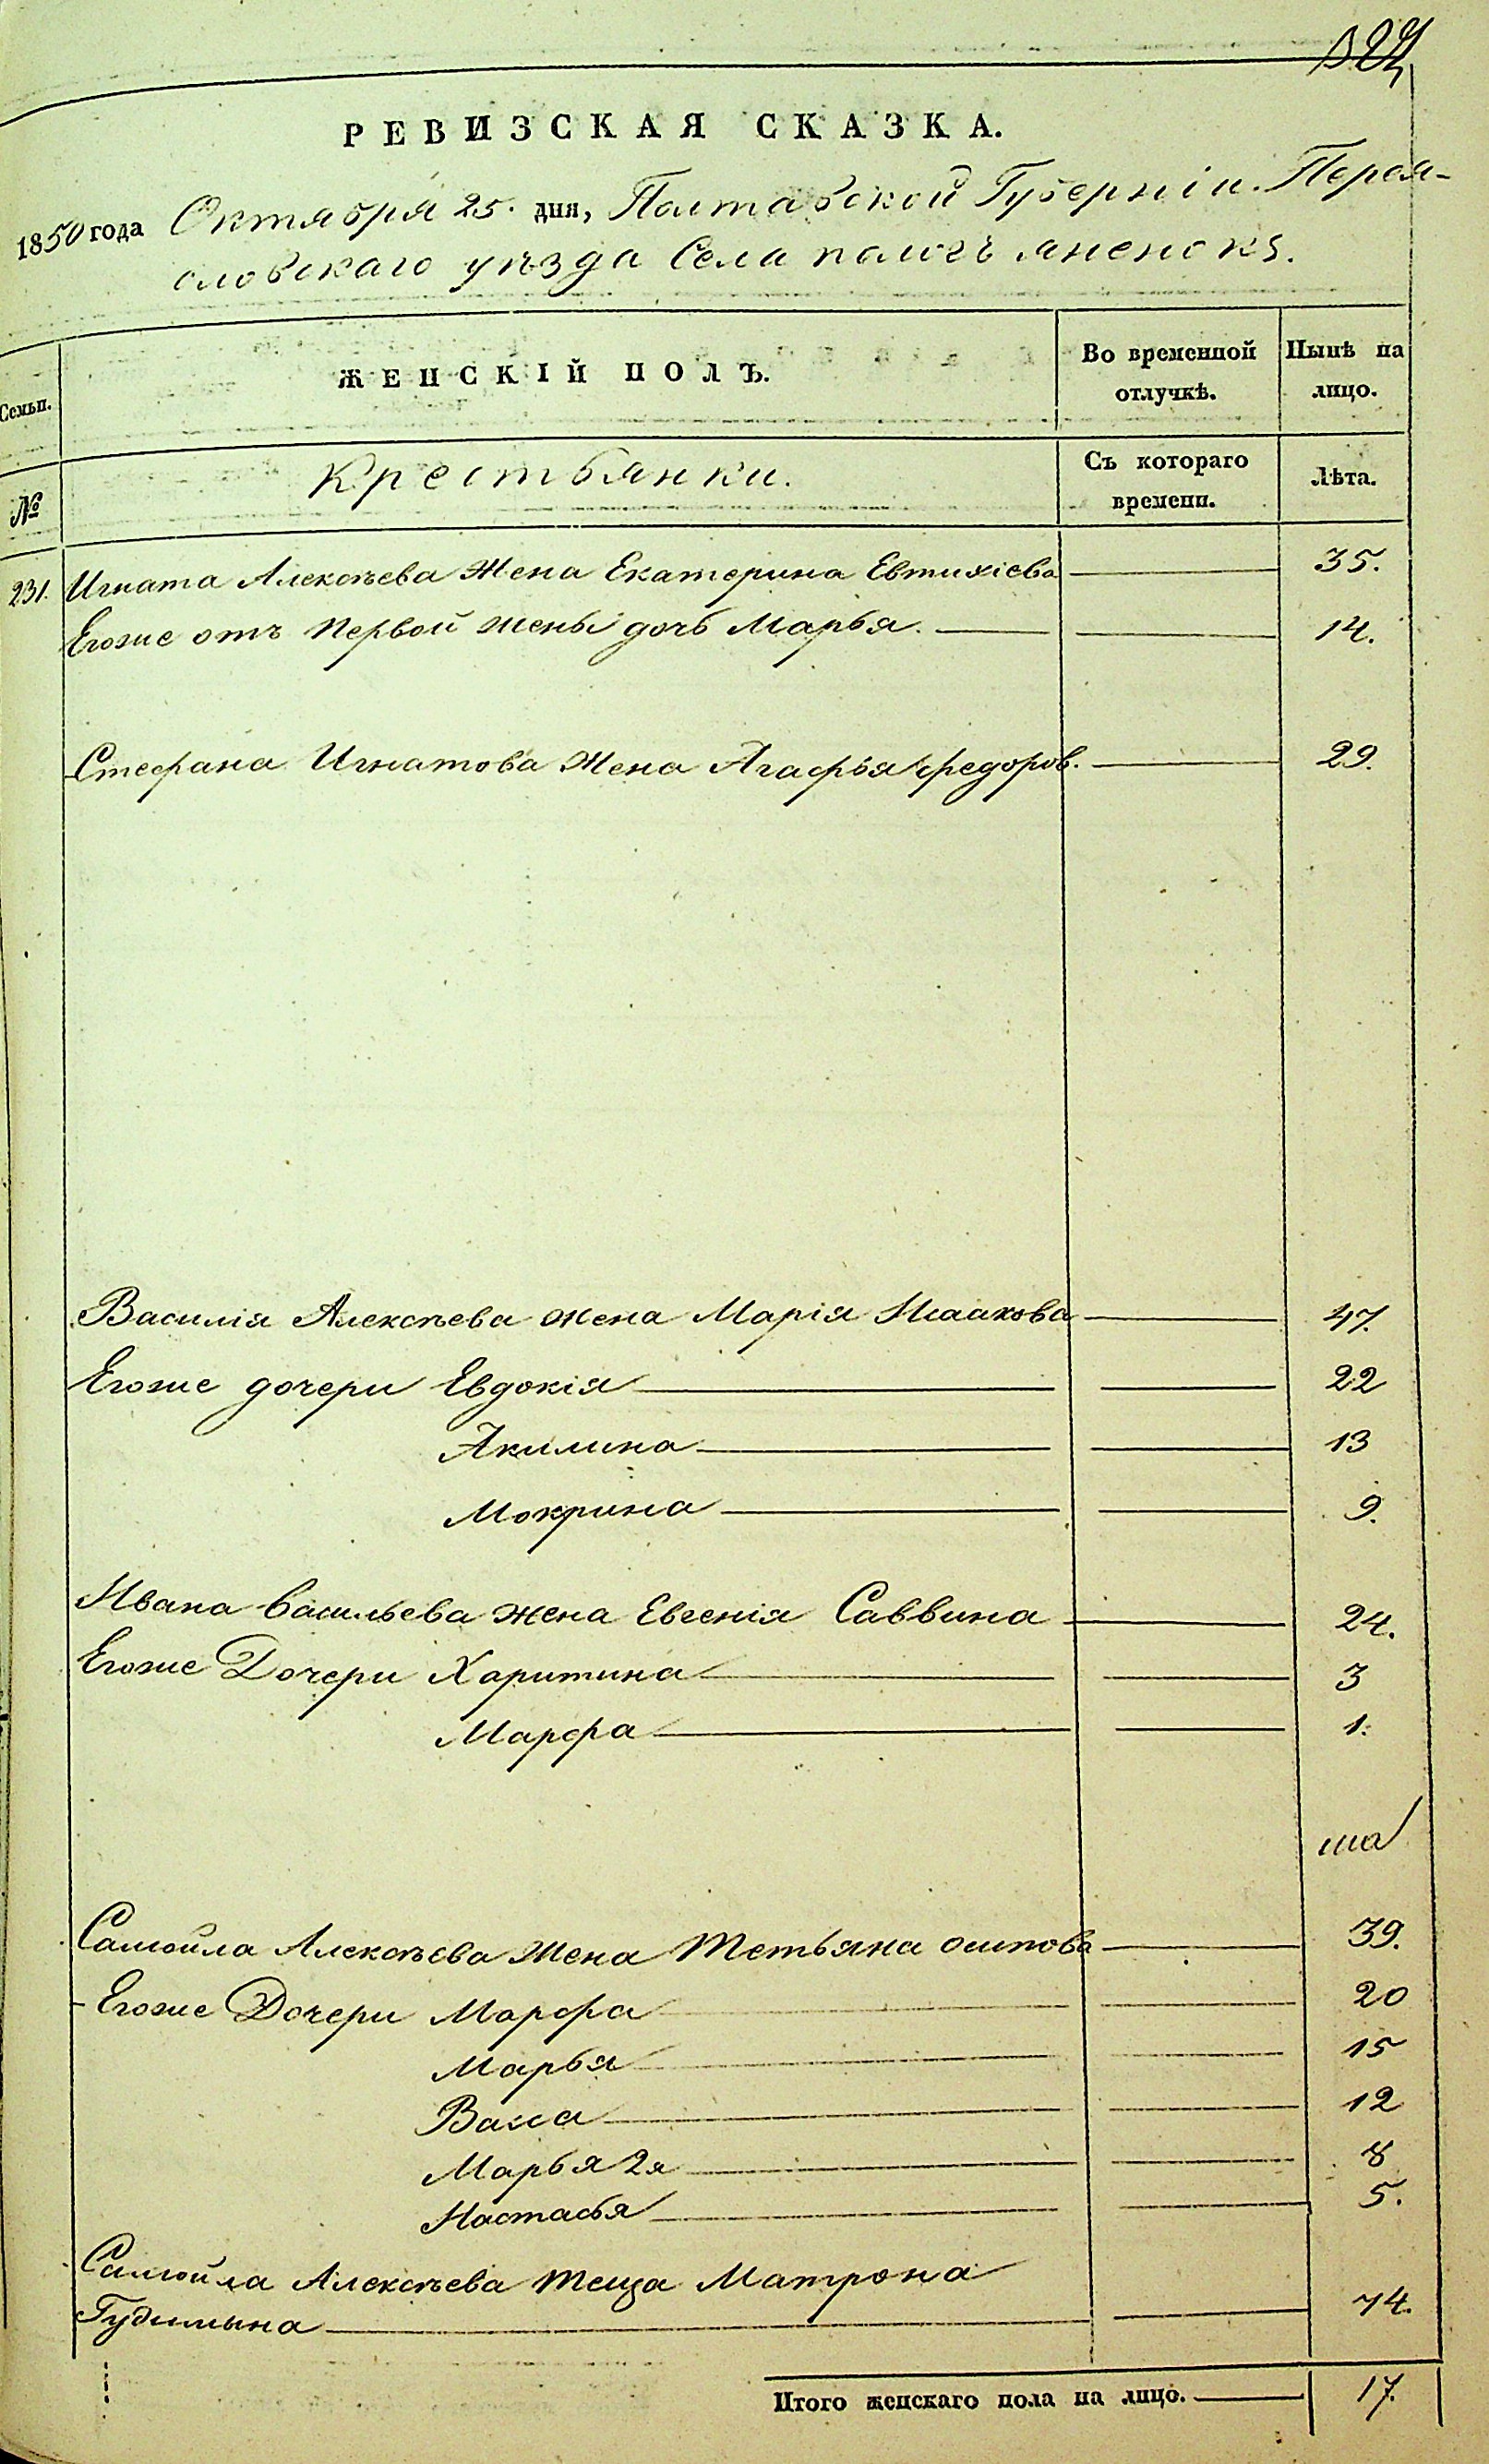 РЕВИЗСКАЯ СКАЗКА.
1850 года Октября 25. дня, Полтавской Губерніи. Перея-
словскаго уѣзда Села
Семьи.
ЖЕНСКІЙ ПОЛЪ.
Во временной отлучкѣ.
Нынѣ на лицо.
№
Крестьянки.
Съ котораго времени.
Лѣта.
231. Игната Алексѣева Жена Екатерина Евтихіева 35.
Егоже отъ первой жены дочь Марья. 14.
Стефана Игнатова Жена Агафья Федоров. 29.
Василія Алексѣева жена Марія Исаакова 47.
Егоже дочери Евдокія 22
Акилина 13
Мокрина 9.
Ивана Васильева жена Евгенія Саввина 24.
Егоже Дочери Харитина 3
Марфа 1.
Самойла Алексѣева Жена Тетьяна Осипова 39.
Егоже Дочери Марфа 20
Марья 15
Васса 12
Марья 2я 8
Настасья 5.
Самойла Алексѣева теща Матрона
Гудимына 74.
Итого женскаго пола на лицо. 17.